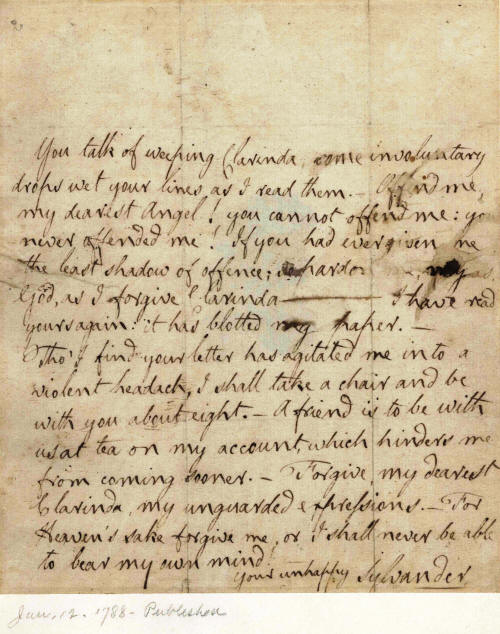 2
You talk of weeping Clarinda, some involuntary
drops wet your lines as I read them. — Offend me,
my dearest Angel! you cannot offend me: you
never offended me! If you had ever given me
the least shadow of offence; so pardon me, my
God, as I forgive Clarinda — I have read
yours again: it has blotted my paper. —
Tho' I find your letter has agitated me into a
violent headack, I shall take a chair and be
with you about eight. — A friend is to be with
us at tea on my account, which hinders me
from coming sooner. — Forgive, my dearest
Clarinda, my unguarded expressions. — For
Heaven's sake forgive me, or I shall never be able
to bear my own mind!
your unhappy Sylvander
Jan. 12. 1788 - Published